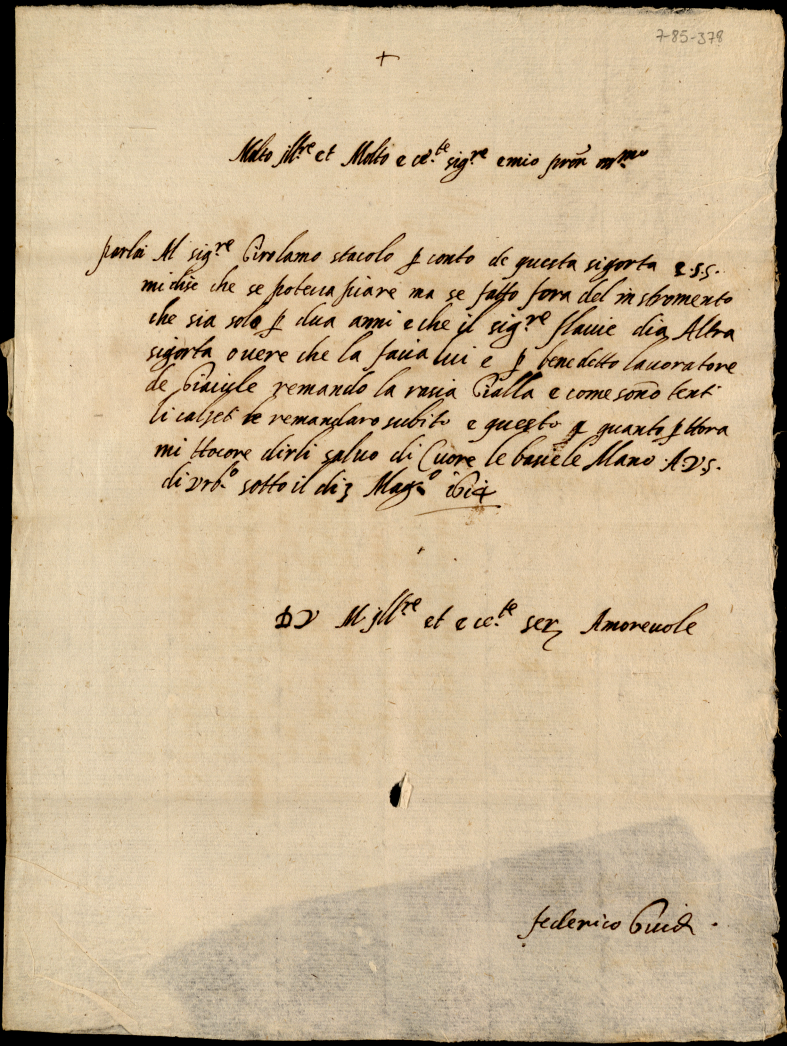 7-85-378
+
Molto Ill.re et Molto ecc.te sig.re e mio pron m.mo
parlai Al sig.re Girolamo stacolo p conto de questa sigorta e S.S.
mi dise che se poteua fiare ma se fatto fora del instromento
che sia solo p dua anni e che il sig.re flauie dia Altra
sigorta ouere che la facia lui e p benedetto lauoratore
de remando la rasia Gialla e come sono tenti
li calzeti ve remandaro subito e questo e quanto p ttora
mi ttocore dirli saluo di Cuore le bascie le Mano A.V.S.
di Vrb.o sotto il di 3 Mag.o 1614
D V M Ill.re et ecc.te ser Amoreuole
federico Guidi